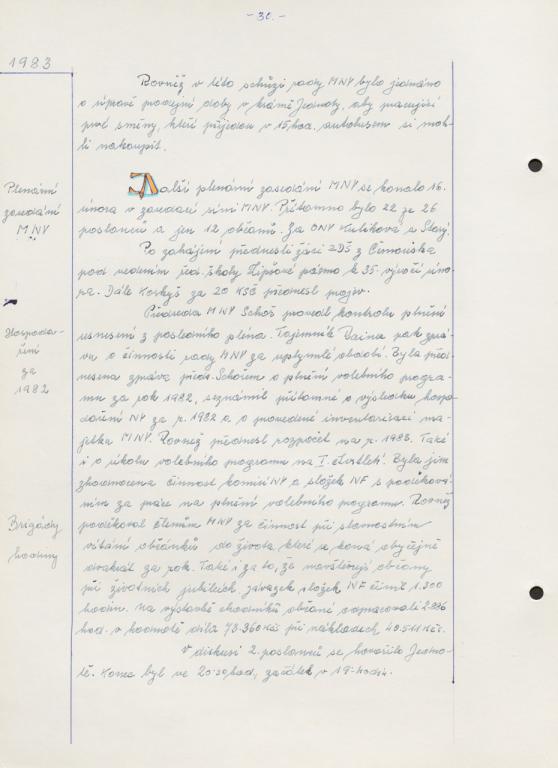 - 30. -
1983
Rovněž v této schůzi rady MNV bylo jednáno
o úpravě prodejní doby v krámě Jednoty, aby pracující
prvé směny, kteří přijedou v 15 hod. autobusem si moh-
li nakoupit.
Plenární
zasedání
MNV
Další plenární zasedání MNV se konalo 16.
února v zasedací síni MNV. Přítomno bylo 22 ze 26
poslanců a jen 12 občanů. Za ONV Kulíková a Starý.
Po zahájení přednesli žáci ZDŠ z
pod vedením řed. školy pásmo k 35. výročí úno-
ra. Dále za ZO KSČ přednesl projev.
Předseda MNV Schoř provedl kontrolu plnění
usnesení z posledního pléna. Tajemník pak zprá-
vu o činnosti rady MNV za uplynulé období. Byla před-
nesena zpráva předs. Schořem o plnění volebního progra-
mu za rok 1982, seznámil přítomné o výsledku hospo-
daření NV za r. 1982 a o provedené inventarisaci ma-
jetku MNV. Rovněž přednesl rozpočet na r. 1983. Také
i o úkolu volebního programu na I. čtvrtletí. Byla jím
zhodnocena činnost komisí NV a složek NF s poděková-
ním za práce na plnění volebního programu. Rovněž
poděkoval členům MNV za činnost při slavnostním
vítání občánků do života, které se koná obyčejně
dvakrát za rok. Také i za to, že navštěvují občany
při životních jubileích. Závazek složek NF činil 1.300
hodin. Na výstavbě chodníků občané odpracovali 2.286
hod. v hodnotě díla 73.360 Kčs při nákladech 40.541 Kčs.
V diskusi 2. poslanců se hovořilo Jedno-
tě. Konec byl ve 20:30 hod., začátek v 19 hodin.
Hospoda-
ření
za
1982
Brigády
hodiny